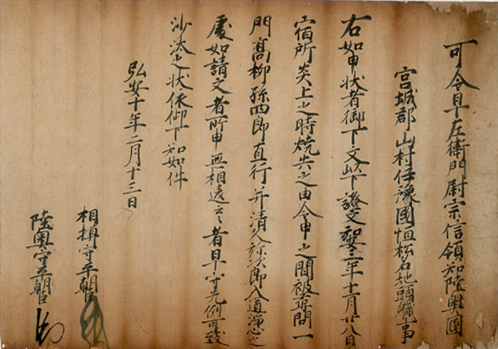 可令早左衛門尉宗信領知陸奥國
宮城郡山村伊豫國恒松名地頭職事
右如申状者御下文以下證文弘安三年十月廿八日
宿所炎上之時焼失之由令申之間被尋問一
門高柳孫四郎直行并清久弥次郎入道浄心之
處如請文者所申無相違云々者早守先例可致
沙汰之状依仰下知如件
弘安十年 月十三日
相模守平朝臣
陸奥守平朝臣